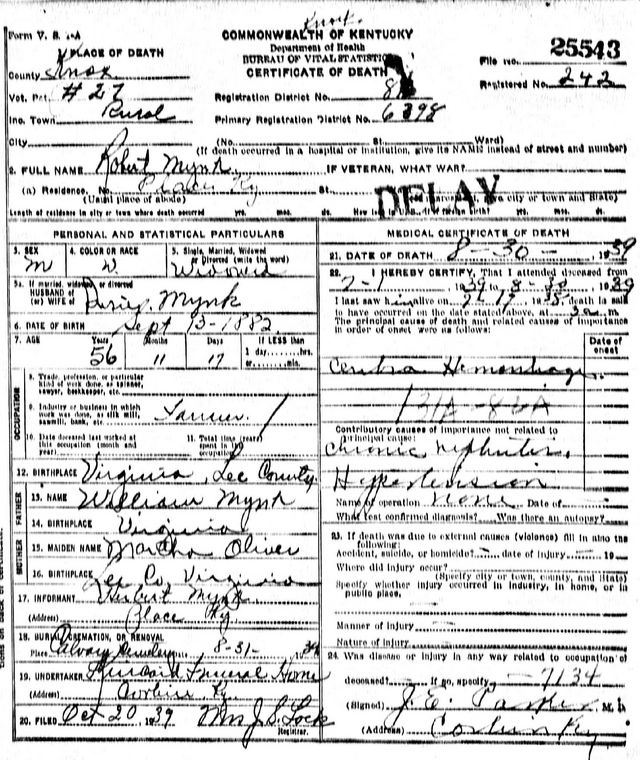 Knox
Form V. S. 1-A
COMMONWEALTH OF KENTUCKY
Department of Health
BUREAU OF VITAL STATISTICS
CERTIFICATE OF DEATH
File No. 25543
Registered No. 242
1. PLACE OF DEATH
County Knox
Vot. Pct #27
Inc. Town Rural
City
Registration District No.
Primary Registration District No. 6398
(No. St. Ward)
(If death occurred in a hospital or institution, give its NAME instead of street and number)
2. FULL NAME Robert Mynk IF VETERAN, WHAT WAR?
(a) Residence. No. Place Ky St.
(Usual place of abode)
DELAY
Length of residence in city or town where death occurred yrs. mos. ds.
PERSONAL AND STATISTICAL PARTICULARS
3. SEX M
4. COLOR OR RACE W.
5. Single, Married, Widowed or Divorced (write the word) Widowed
5a. If married, widowed or divorced
HUSBAND of
(or) WIFE of Mynk
6. DATE OF BIRTH Sept 13-1882
7. AGE Years Months Days If LESS than
56 11 17 1 day, hrs. or min.
OCCUPATION
8. Trade, profession, or particular kind of work done, as spinner, sawyer, bookkeeper, etc.
9. Industry or business in which work was done, as silk mill, sawmill, bank, etc. Farmer
10. Date deceased last worked at this occupation (month and year)
11. Total time (years) spent in this occupation
12. BIRTHPLACE Virginia, Lee County
FATHER
13. NAME William Mynk
14. BIRTHPLACE Virginia
MOTHER
15. MAIDEN NAME Martha Oliver
16. BIRTHPLACE Lee Co, Virginia
17. INFORMANT Herbert Mynk
(Address) Place Ky
18. BURIAL, CREMATION, OR REMOVAL
Place Calvary Cemetery 8-31-
19. UNDERTAKER Funeral Home
(Address) Corbin, Ky
20. FILED Oct 20, 1939 Mrs J. S. Lock
Registrar.
MEDICAL CERTIFICATE OF DEATH
21. DATE OF DEATH 8-30-1939
22. I HEREBY CERTIFY, That I attended deceased from
7-1 1939 to 8-30 1939
I last saw him alive on death is said
to have occurred on the date stated above, at 3 a m
The principal cause of death and related causes of importance
in order of onset were as follows:
Date of onset
Hemorrhage
131A-82A
Contributory causes of importance not related to
principal cause:
Chronic nephritis
Hypertension
Name of operation none Date of
What test confirmed diagnosis? Was there an autopsy?
23. If death was due to external causes (violence) fill in also the
following:
Accident, suicide, or homicide? date of injury 19
Where did injury occur?
(Specify city or town, county, and State)
Specify whether injury occurred in industry, in home, or in
public place.
Manner of injury
Nature of injury
24. Was disease or injury in any way related to occupation of
deceased? If so, specify 7134
(Signed) J. E. Parker M. D.
(Address) Corbin Ky